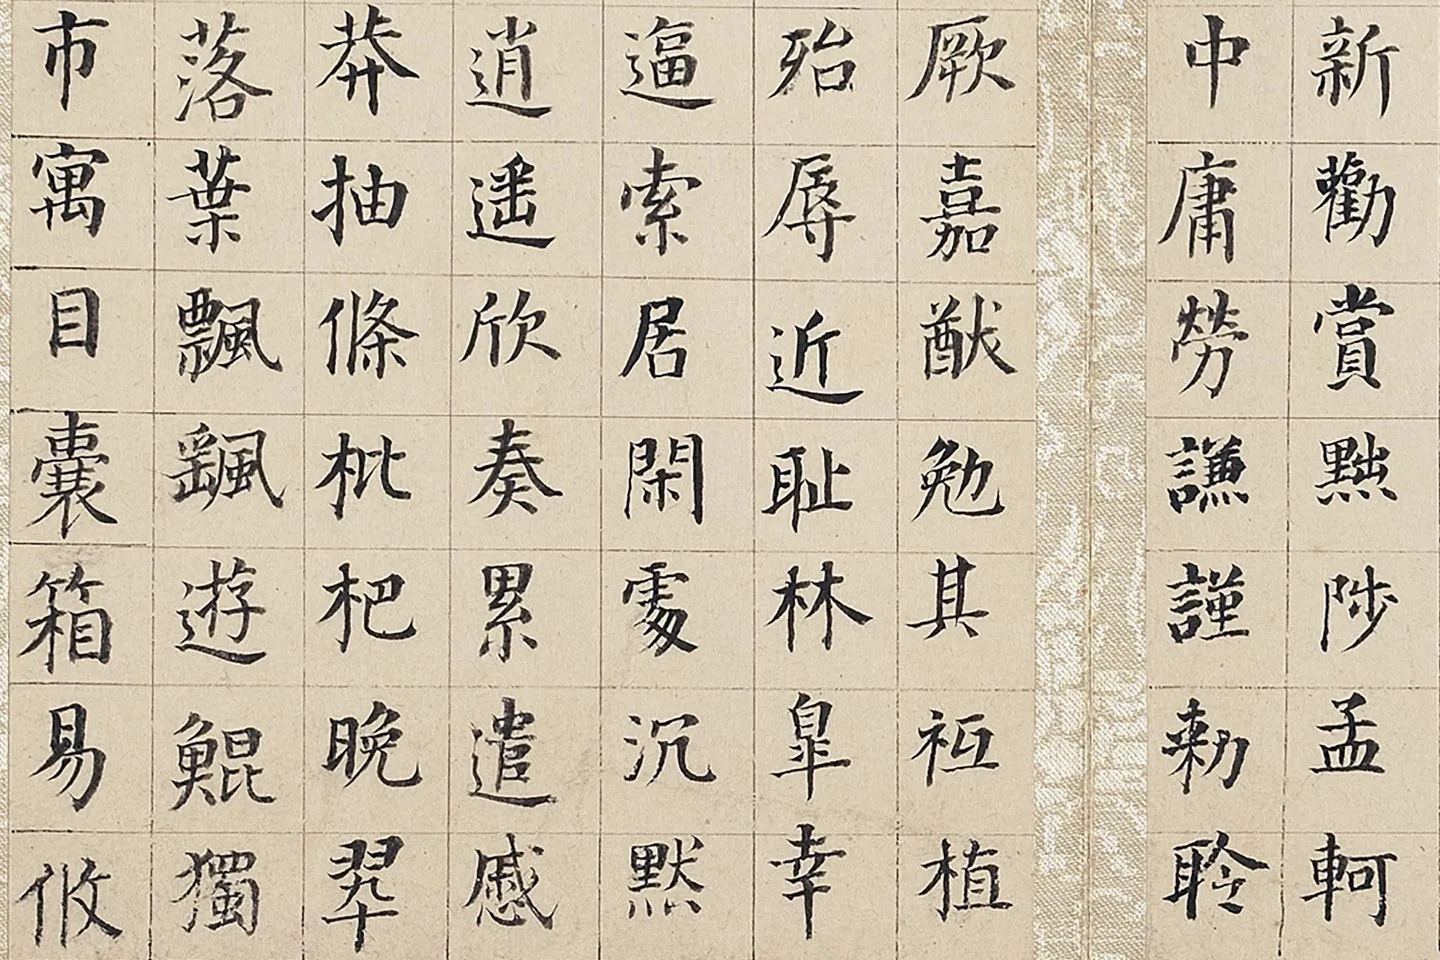 新勸賞黜陟孟軻
中庸勞謙謹勑聆
厥嘉猷勉其祗植
殆辱近耻林皐幸
逼索居閑處沉默
逍遥欣奏累遣慼
莽抽條枇杷晚翠
落葉飄颻遊鯤獨
市寓目囊箱易攸